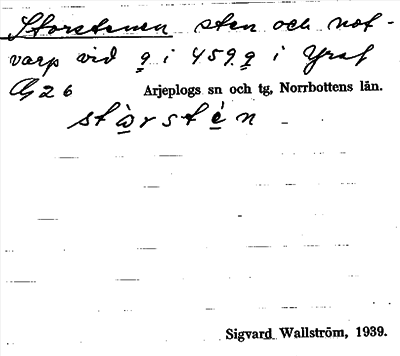 Storstenen sten och not-
varp vid q i 459 q i Yraf
G 26 Arjeplogs sn och tg, Norrbottens län.
stòrstén
Sigvard Wallström, 1939.